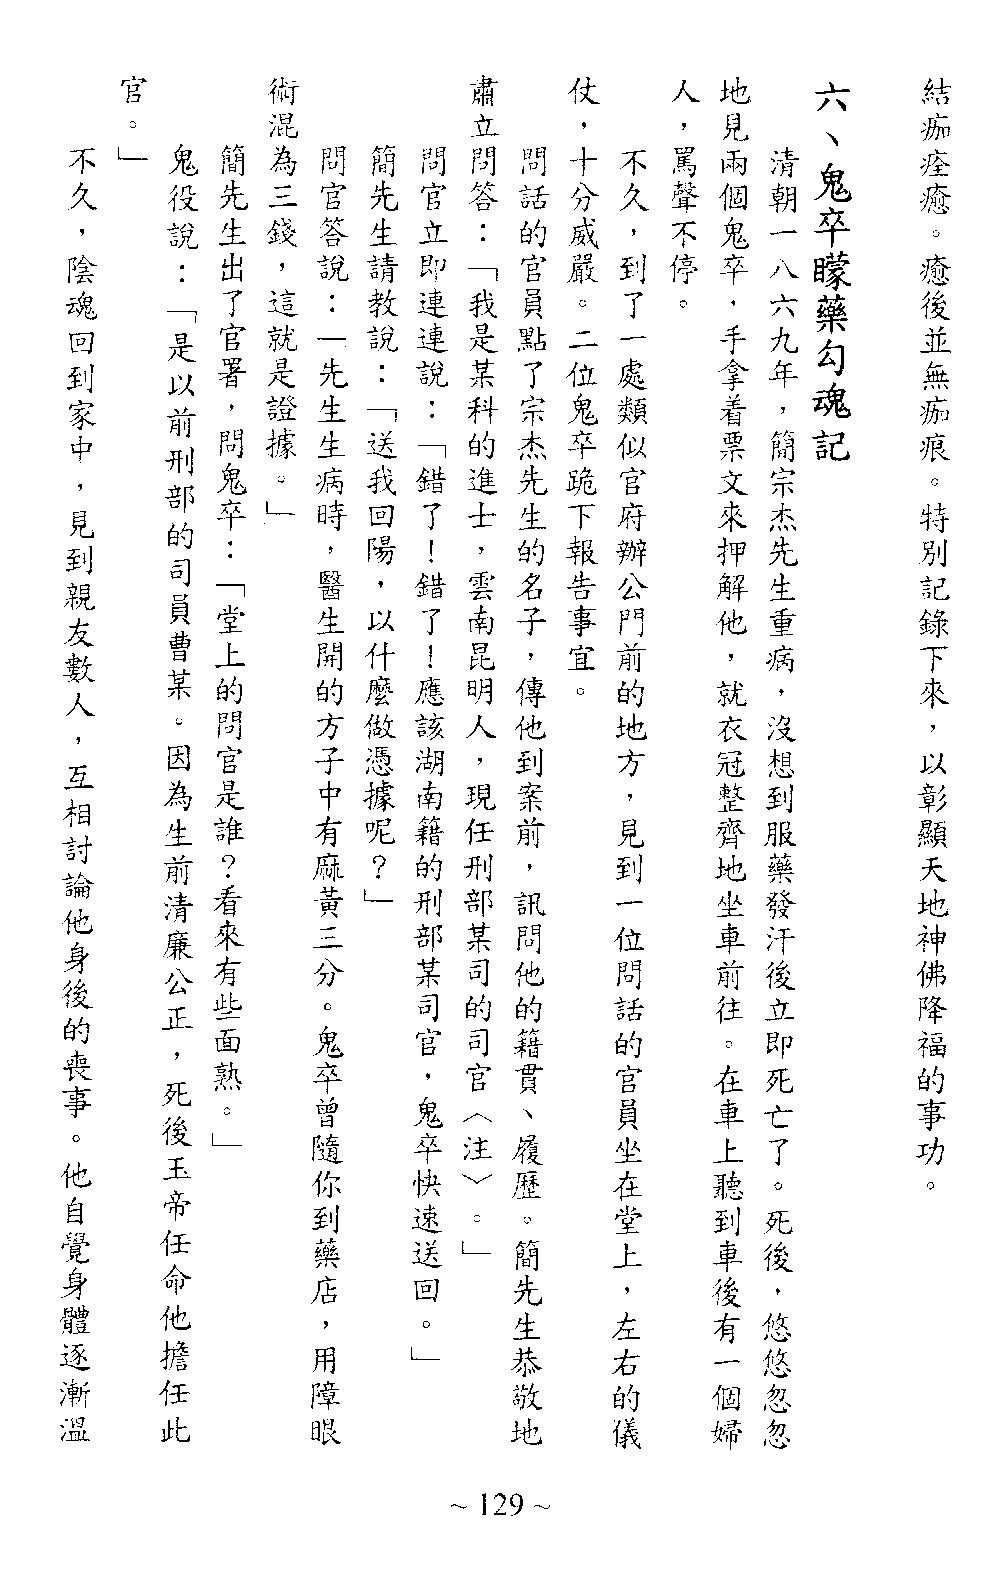 結痂痊癒。癒後並無痂痕。特別記錄下來，以彰顯天地神佛降福的事功。
六、鬼卒矇藥勾魂記
清朝一八六九年，簡宗杰先生重病，沒想到服藥發汗後立即死亡了。死後，悠悠忽忽
地見兩個鬼卒，手拿着票文來押解他，就衣冠整齊地坐車前往。在車上聽到車後有一個婦
人，罵聲不停。
不久，到了一處類似官府辦公門前的地方，見到一位問話的官員坐在堂上，左右的儀
仗，十分威嚴。二位鬼卒跪下報告事宜。
問話的官員點了宗杰先生的名子，傳他到案前，訊問他的籍貫、履歷。簡先生恭敬地
肅立問答：「我是某科的進士，雲南昆明人，現任刑部某司的司官〈注〉。」
問官立即連連說：「錯了！錯了！應該湖南籍的刑部某司官，鬼卒快速送回。」
簡先生請教說：「送我回陽，以什麼做憑據呢？」
問官答說：「先生生病時，醫生開的方子中有麻黃三分。鬼卒曾隨你到藥店，用障眼
術混為三錢，這就是證據。」
簡先生出了官署，問鬼卒：「堂上的問官是誰？看來有些面熟。」
鬼役說：「是以前刑部的司員曹某。因為生前清廉公正，死後玉帝任命他擔任此
官。」
不久，陰魂回到家中，見到親友數人，互相討論他身後的喪事。他自覺身體逐漸溫
~ 129 ~